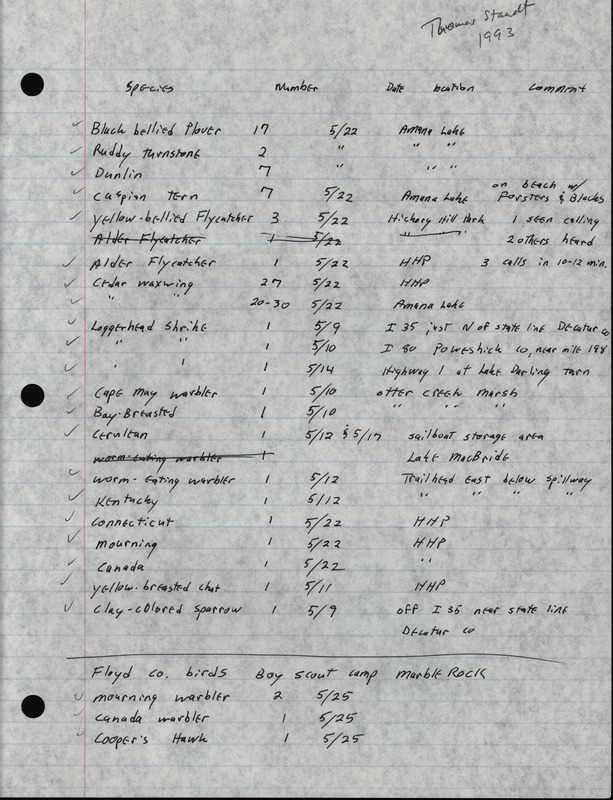 Thomas Staudt
1993
Species Number Date Location Comment
Black bellied Plover 17 5/22 Amana Lake
Ruddy turnstone 2 " " "
Dunlin 7 " "
on beach w/
Caspian Tern 7 5/22 Amana Lake Forsters & Blacks
Yellow-bellied Flycatcher 3 5/22 Hickory Hill Park 1 seen calling
Alder Flycatcher 1 5/22 " 2 others heard
Alder Flycatcher 1 5/22 HHP 3 calls in 10-12 min.
Cedar waxwing 27 5/22 HHP
" " 20-30 5/22 Amana Lake
Loggerhead Shrike 1 5/9 I 35 just N of state line Decatur Co
" " 1 5/10 I 80 Poweshiek Co, near mile 198
" " 1 5/14 Highway 1 at Lake Darling turn
Cape May warbler 1 5/10 otter creek marsh
Bay-Breasted 1 5/10 " " "
Cerulean 1 5/12 & 5/17 sailboat storage area
worm-eating warbler 1 Lake MacBride
worm-Eating warbler 1 5/12 Trailhead East below spillway
Kentucky 1 5/12 " " " "
Connecticut 1 5/22 HHP
mourning 1 5/22 HHP
Canada 1 5/22 "
yellow-breasted chat 1 5/11 HHP
Clay-colored sparrow 1 5/9 off I 35 near state line
Decatur co.
Floyd co. birds Boy scout camp marble Rock
mourning warbler 2 5/25
Canada warbler 1 5/25
Cooper's Hawk 1 5/25